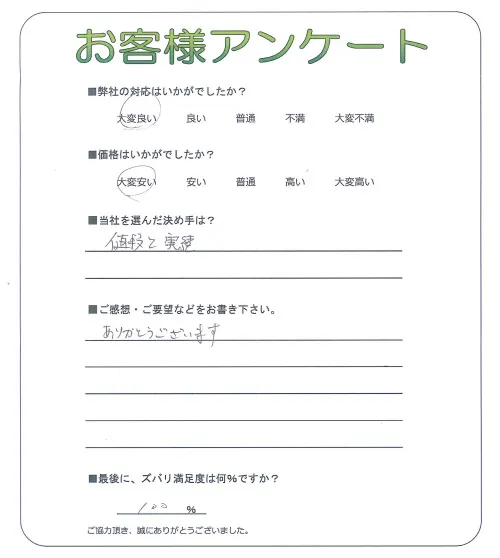 お客様アンケート
■弊社の対応はいかがでしたか?
大変良い 良い 普通 不満 大変不満
■価格はいかがでしたか?
大変安い 安い 普通 高い 大変高い
■当社を選んだ決め手は?
値段と実績
■ご感想・ご要望などをお書き下さい。
ありがとうございます
■最後に、ズバリ満足度は何%ですか?
100 %
ご協力頂き、誠にありがとうございました。